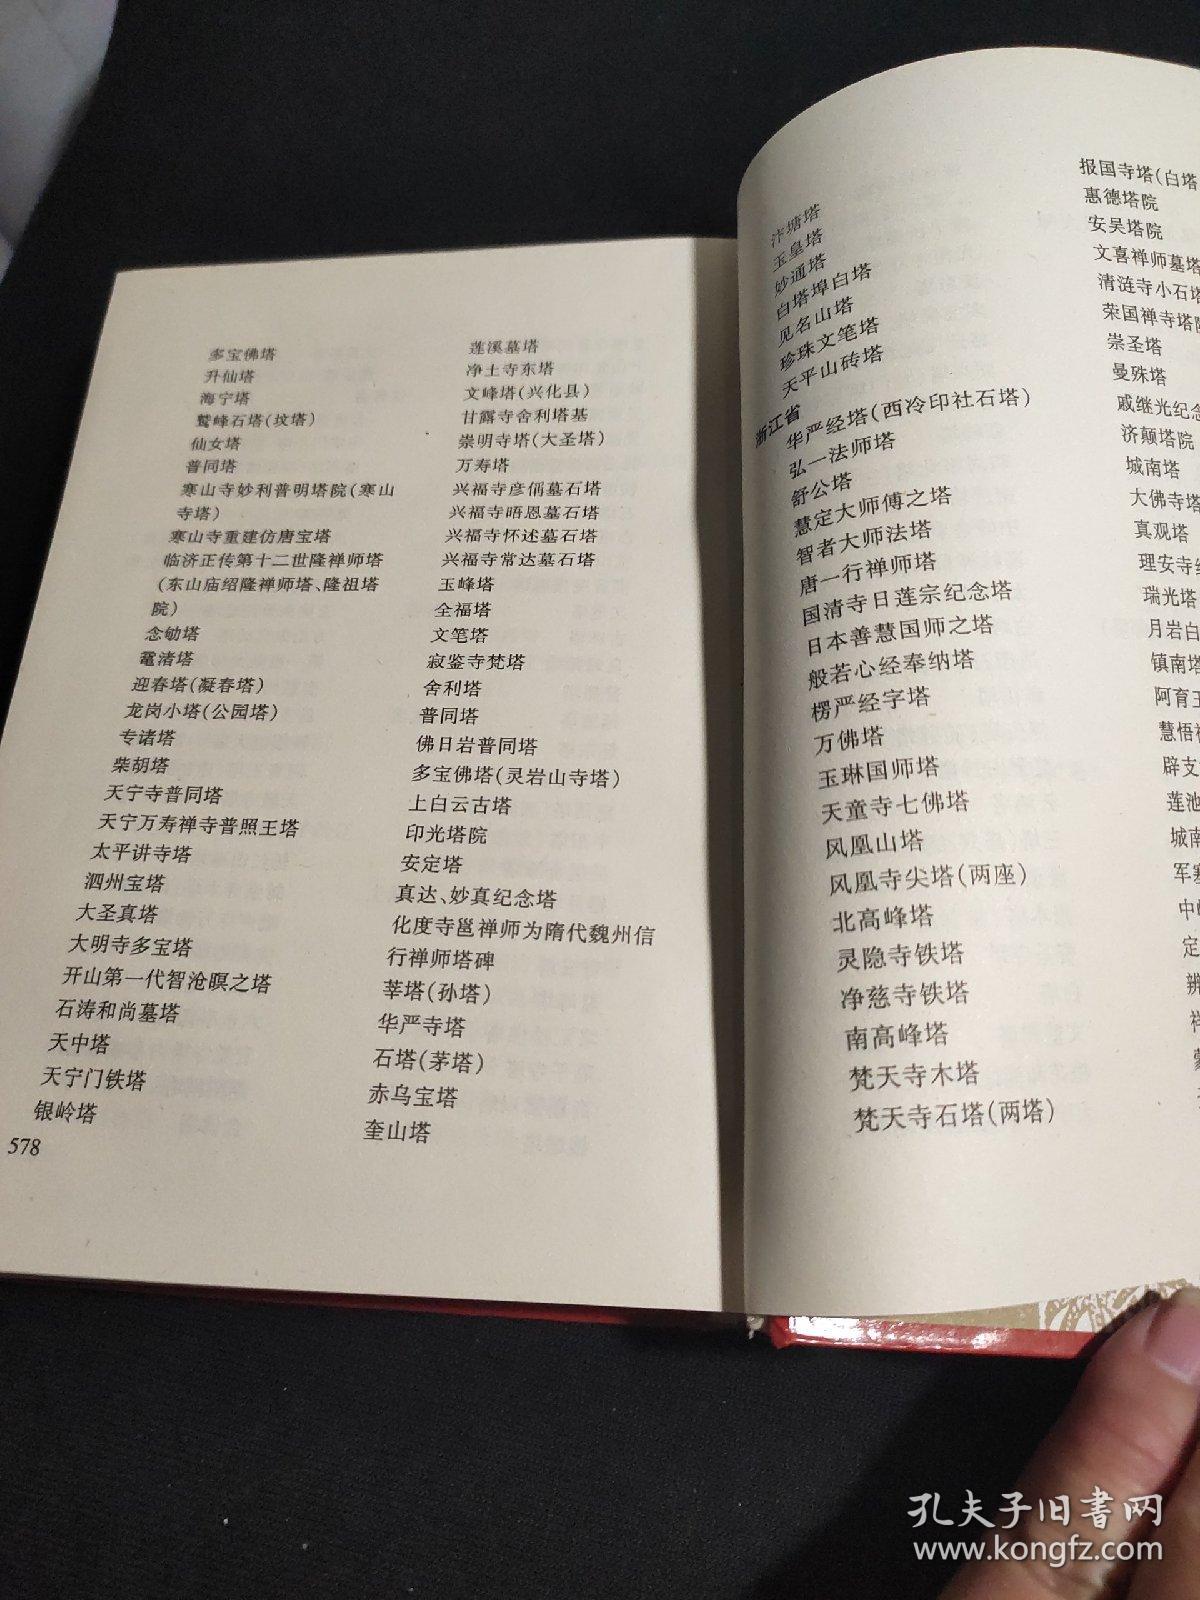 多宝佛塔
升仙塔
海宁塔
鹫峰石塔(坟塔)
仙女塔
普同塔
寒山寺妙利普明塔院(寒山
寺塔)
寒山寺重建仿唐宝塔
临济正传第十二世隆禅师塔
(东山庙绍隆禅师塔、隆祖塔
院)
念劬塔
鼋渚塔
迎春塔(凝春塔)
龙岗小塔(公园塔)
专诸塔
柴胡塔
天宁寺普同塔
天宁万寿禅寺普照王塔
太平讲寺塔
泗州宝塔
大圣真塔
大明寺多宝塔
开山第一代智沧暝之塔
石涛和尚墓塔
天中塔
天宁门铁塔
银岭塔
578
莲溪墓塔
净土寺东塔
文峰塔(兴化县)
甘露寺舍利塔基
崇明寺塔(大圣塔)
万寿塔
兴福寺彦偁墓石塔
兴福寺晤恩墓石塔
兴福寺怀述墓石塔
兴福寺常达墓石塔
玉峰塔
全福塔
文笔塔
寂鉴寺梵塔
舍利塔
普同塔
佛日岩普同塔
多宝佛塔(灵岩山寺塔)
上白云古塔
印光塔院
安定塔
真达、妙真纪念塔
化度寺邕禅师为隋代魏州信
行禅师塔碑
莘塔(孙塔)
华严寺塔
石塔(茅塔)
赤乌宝塔
奎山塔
汴塘塔
玉皇塔
妙通塔
白塔埠白塔
见名山塔
珍珠文笔塔
天平山砖塔
浙江省
华严经塔(西冷印社石塔)
弘一法师塔
舒公塔
慧定大师傅之塔
智者大师法塔
唐一行禅师塔
国清寺日莲宗纪念塔
日本善慧国师之塔
般若心经奉纳塔
楞严经字塔
万佛塔
玉琳国师塔
天童寺七佛塔
风凰山塔
风凰寺尖塔(两座)
北高峰塔
灵隐寺铁塔
净慈寺铁塔
南高峰塔
梵天寺木塔
梵天寺石塔(两塔)
报国寺塔(白塔
惠德塔院
安吴塔院
文喜禅师墓塔
清涟寺小石塔
荣国禅寺塔院
崇圣塔
曼殊塔
戚继光纪念
济颠塔院
城南塔
大佛寺塔
真观塔
理安寺经
瑞光塔
月岩白
镇南塔
阿育王
慧悟禅
辟支
莲池
城南
军寨
中峰
定
辨
禅
孔夫子旧书网
www.kongfz.com